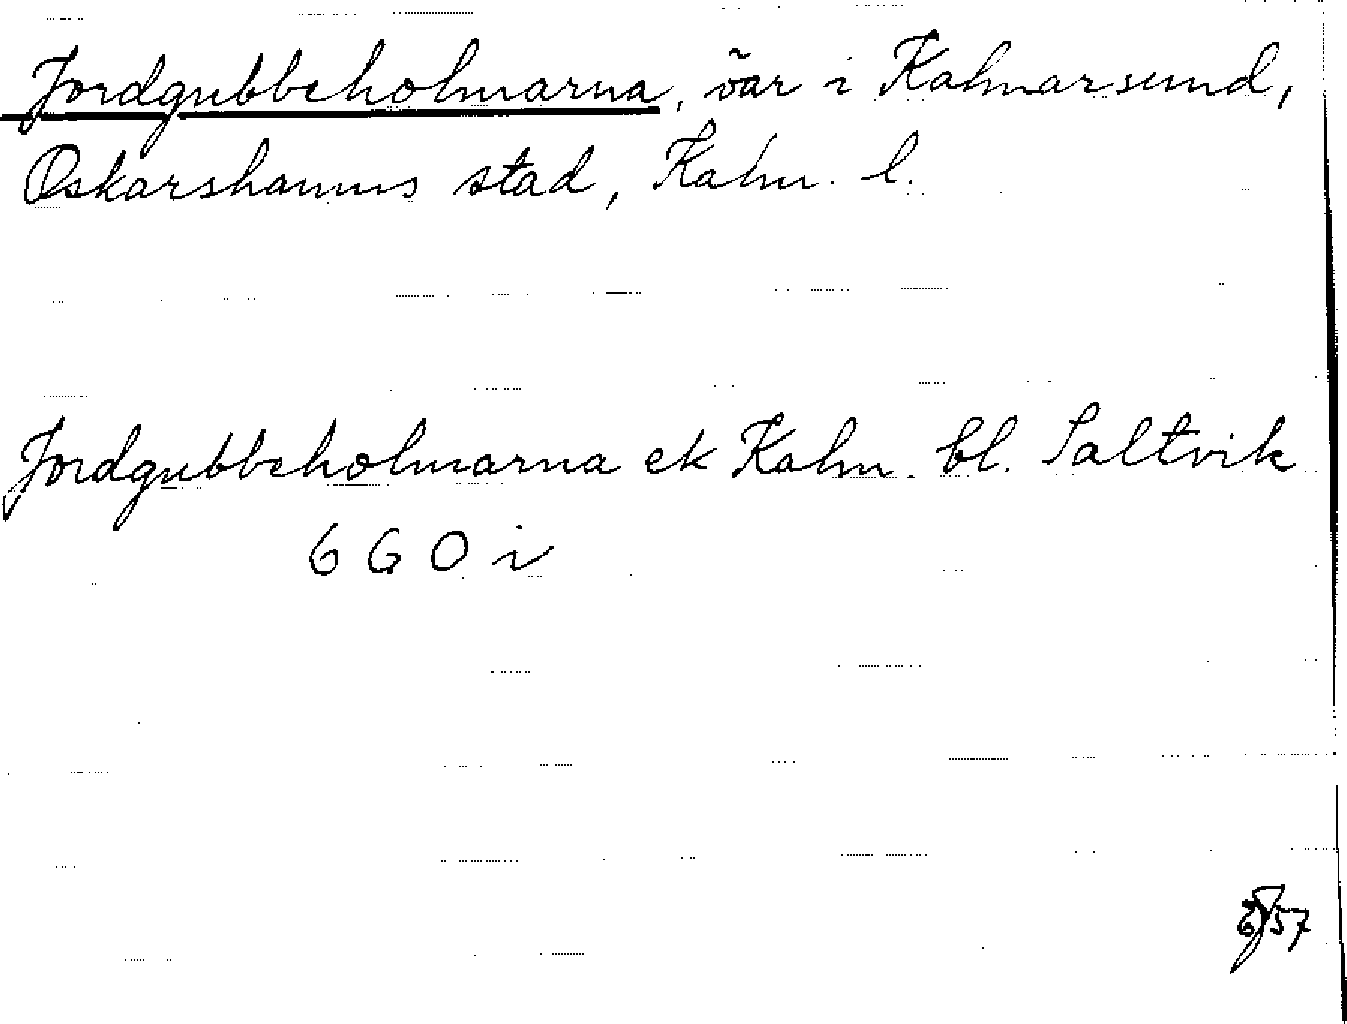 Jordgubbeholmarna, öar i Kalmarsund,
Oskarshamns stad, Kalm. l.
Jordgubbeholmarna ek Kalm. bl. Saltvik
6 G O i
57